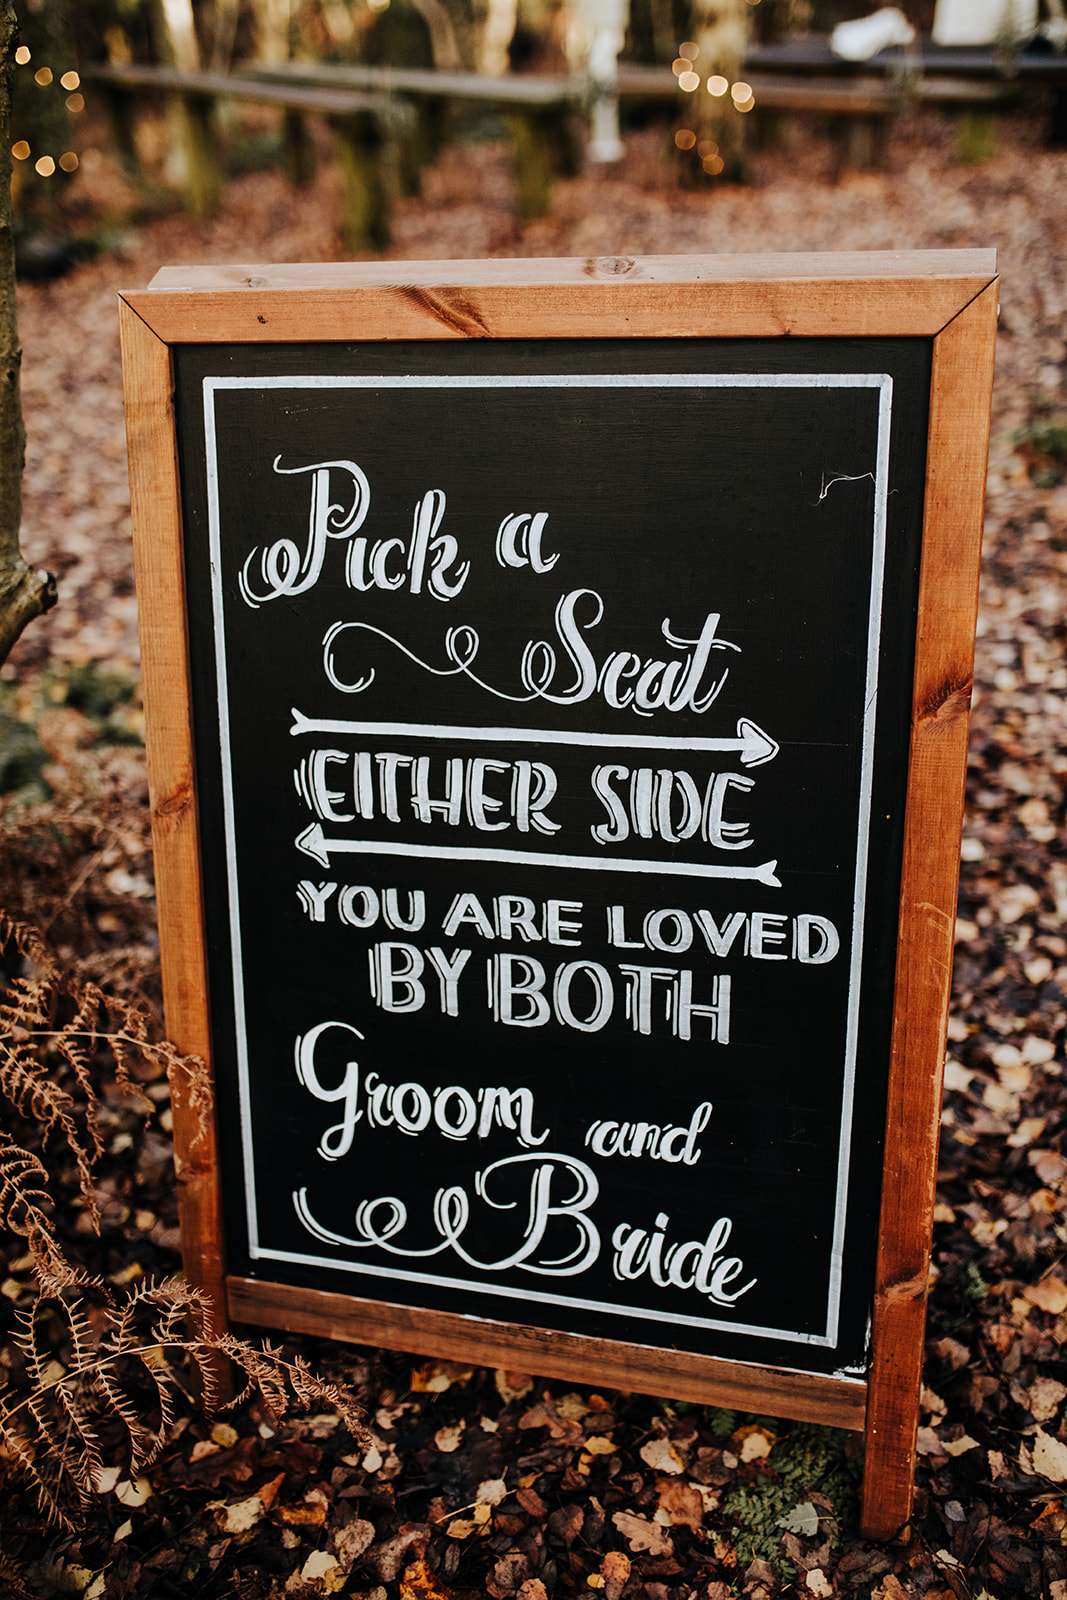 Pick a
Seat
EITHER SIDE
YOU ARE LOVED
BY BOTH
Groom and
Bride